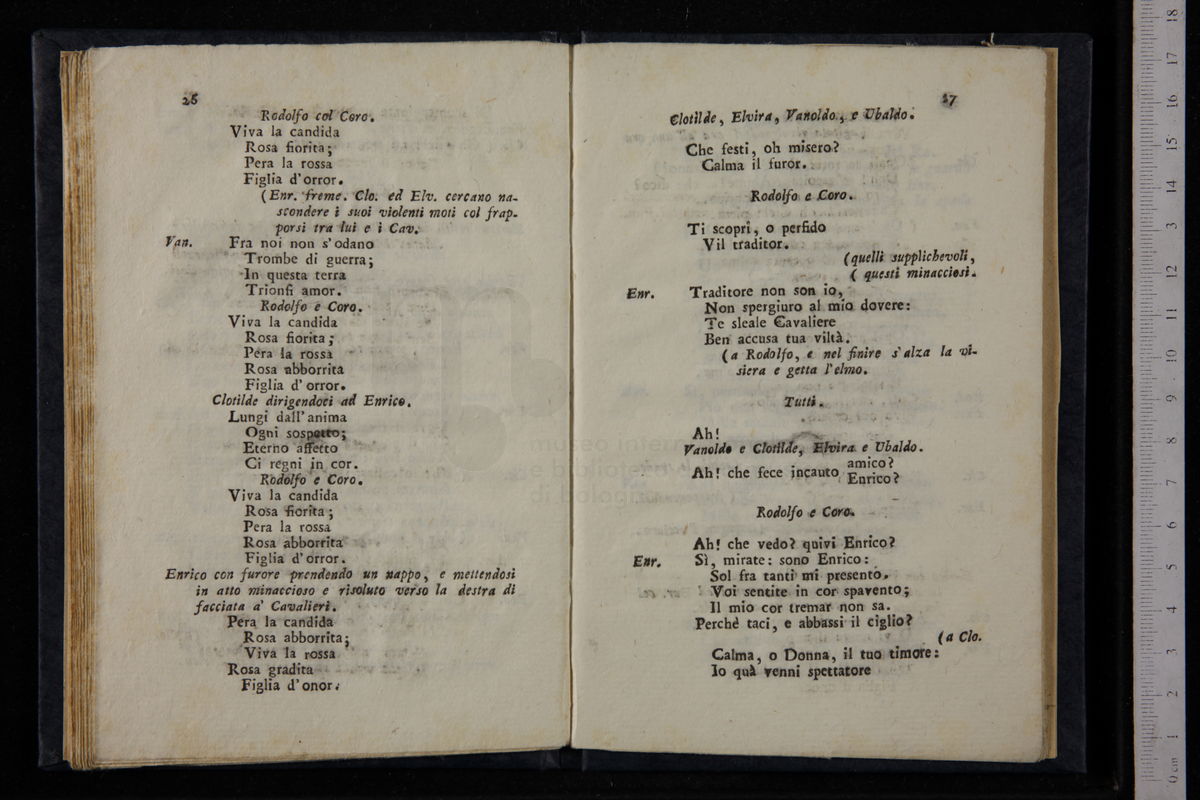 26
Rodolfo col Coro.
Viva la candida
Rosa fiorita;
Pera la rossa
Figlia d'orror.
(Enr. freme. Clo. ed Elv. cercano na-
scondere i suoi violenti moti col frap-
porsi tra lui e i Cav.
Van. Fra noi non s'odano
Trombe di guerra;
In questa terra
Trionfi amor.
Rodolfo e Coro.
Viva la candida
Rosa fiorita;
Pera la rossa
Rosa abborrita
Figlia d'orror.
Clotilde dirigendoci ad Enrico.
Lungi dall'anima
Ogni sospetto;
Eterno affetto
Ci regni in cor.
Rodolfo e Coro.
Viva la candida
Rosa fiorita;
Pera la rossa
Rosa abborrita
Figlia d'orror.
Enrico con furore prendendo un nappo, e mettendosi
in atto minaccioso e risoluto verso la destra di
facciata a' Cavalieri.
Pera la candida
Rosa abborrita;
Viva la rossa
Rosa gradita
Figlia d'onor.
27
Clotilde, Elvira, Vanoldo, e Ubaldo.
Che festi, oh misero?
Calma il furor.
Rodolfo e Coro.
Ti scopri, o perfido
Vil traditor.
(quelli supplichevoli,
( questi minacciosi.
Enr. Traditore non son io,
Non spergiuro al mio dovere:
Te sleale Cavaliere
Ben accusa tua viltà.
(a Rodolfo, e nel finire s'alza la vi-
siera e getta l'elmo.
Tutti.
Ah!
Vanoldo e Clotilde, Elvira e Ubaldo.
Ah! che fece incauto amico?
Enrico?
Rodolfo e Coro.
Ah! che vedo? quivi Enrico?
Enr. Sì, mirate: sono Enrico:
Sol fra tanti mi presento.
Voi sentite in cor spavento;
Il mio cor tremar non sa.
Perchè taci, e abbassi il ciglio?
(a Clo.
Calma, o Donna, il tuo timore:
Io quà venni spettatore